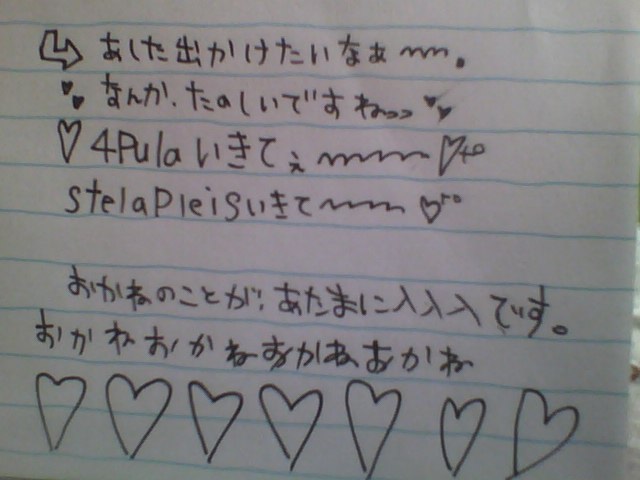 あした出かけたいなぁ〜〜。
なんか、たのしいですねっっ
4Pulaいきてぇ〜〜〜
stelaPleisいきて〜〜
おかねのことが、あたまに入入入です。
おかねおかねおかねおかね